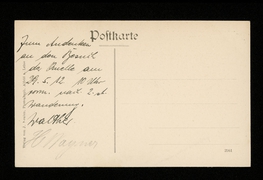 Postkarte
Zum Andenken
an den
der Quelle am
29.5.12 10 Uhr
vorm. nach 2 st
Wanderung.
Walther
H. Wagner